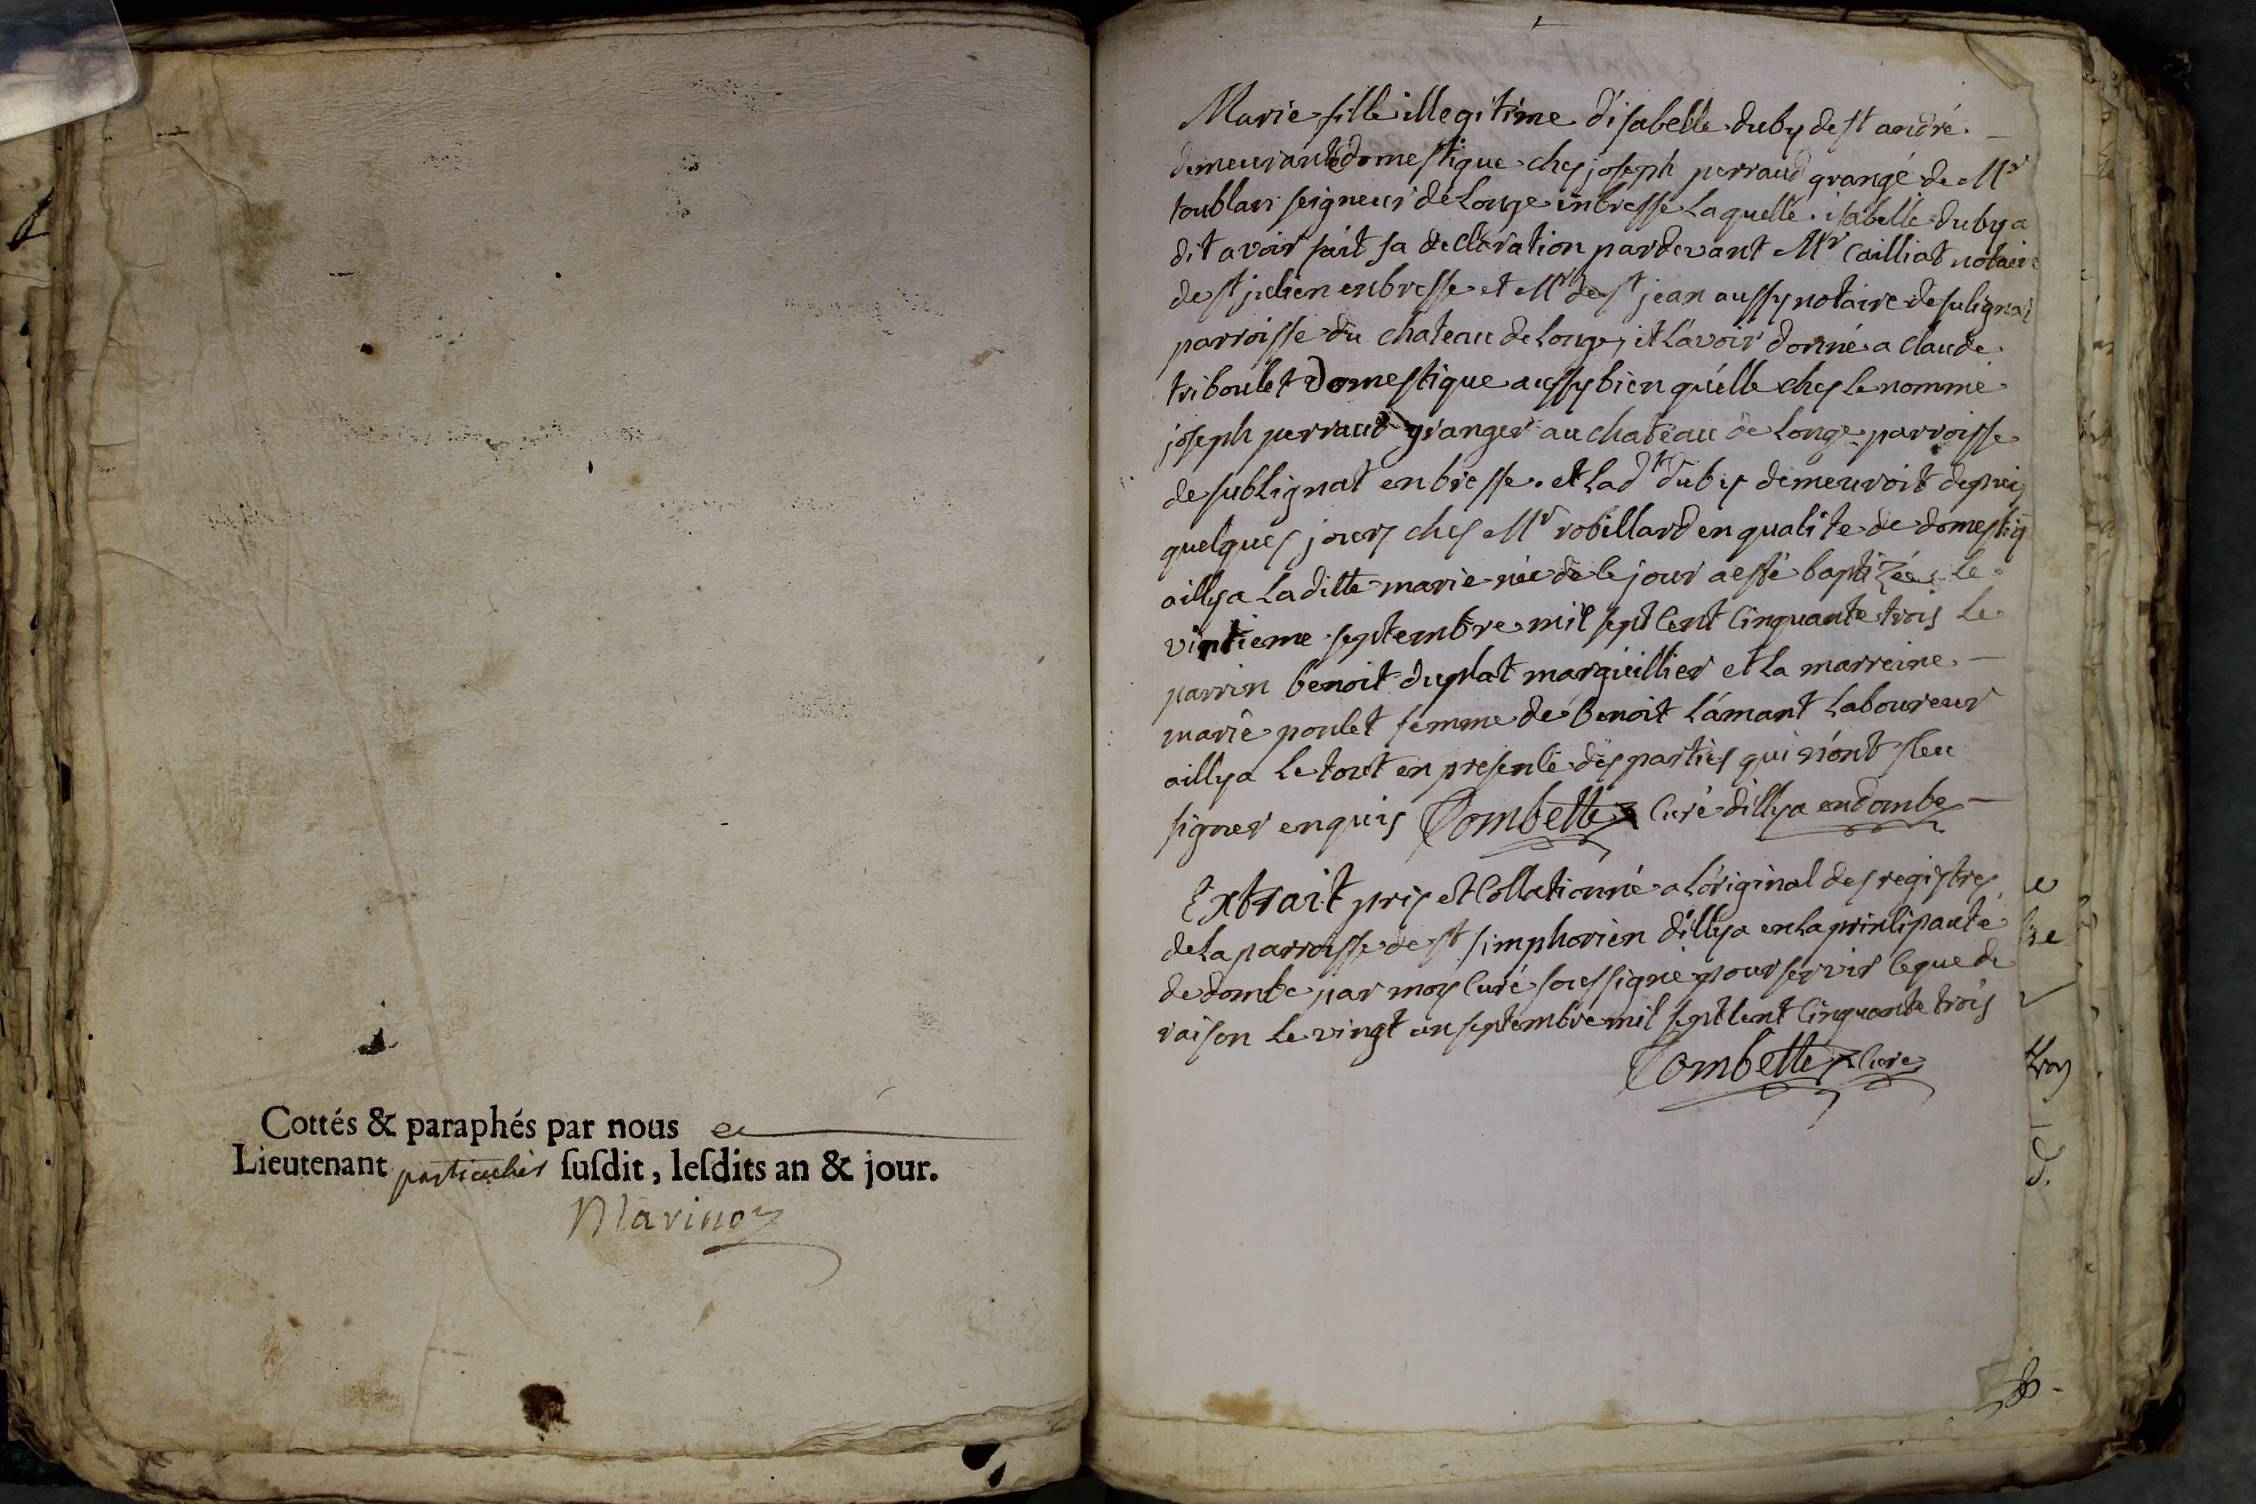 Cottés & paraphés par nous
Lieutenant particulier susdit, lesdits an & jour.
Marinon
Marie fille illegitime d'isabelle duby de st andré
demeurante domestique ches joseph perraud grangé de Mr
toublan seigneur de Longe in bresse Laquelle isabelle duby a
dit avoir fait sa declaration pardevant Mr Cailliat notaire
de st julien en bresse et Mr de st jean aussy notaire de sulignat
parroisse du chateau de Longe, et L'avoir donné a claude
triboulet domestique aussy bien qu'elle ches le nommé
joseph perraud granger au chateau de Longe parroisse
de subLignat en bresse. et Lad te duby demeuroit depuis
quelques jours ches Mr robillard en qualite de domestiq
a illya Laditte marie née de ce jour a esté baptizée Le
vintieme septembre mil sept cent cinquante trois Le
parrin benoit duplat margueillier et La marreine
marie poulet femme de benoit L'amant Laboureur
a illya Le tout en presence des parties qui n'ont sceu
signer enquis Combette Curé d'illya en dombe
Extrait pris et Collationné a L'original des registres
de La parroisse de st simphorien d'illya en La principauté
de dombe par moy Curé soussigné pour servir ce que de
raison Le vingt un septembre mil sept cent cinquante trois
Combette Curé